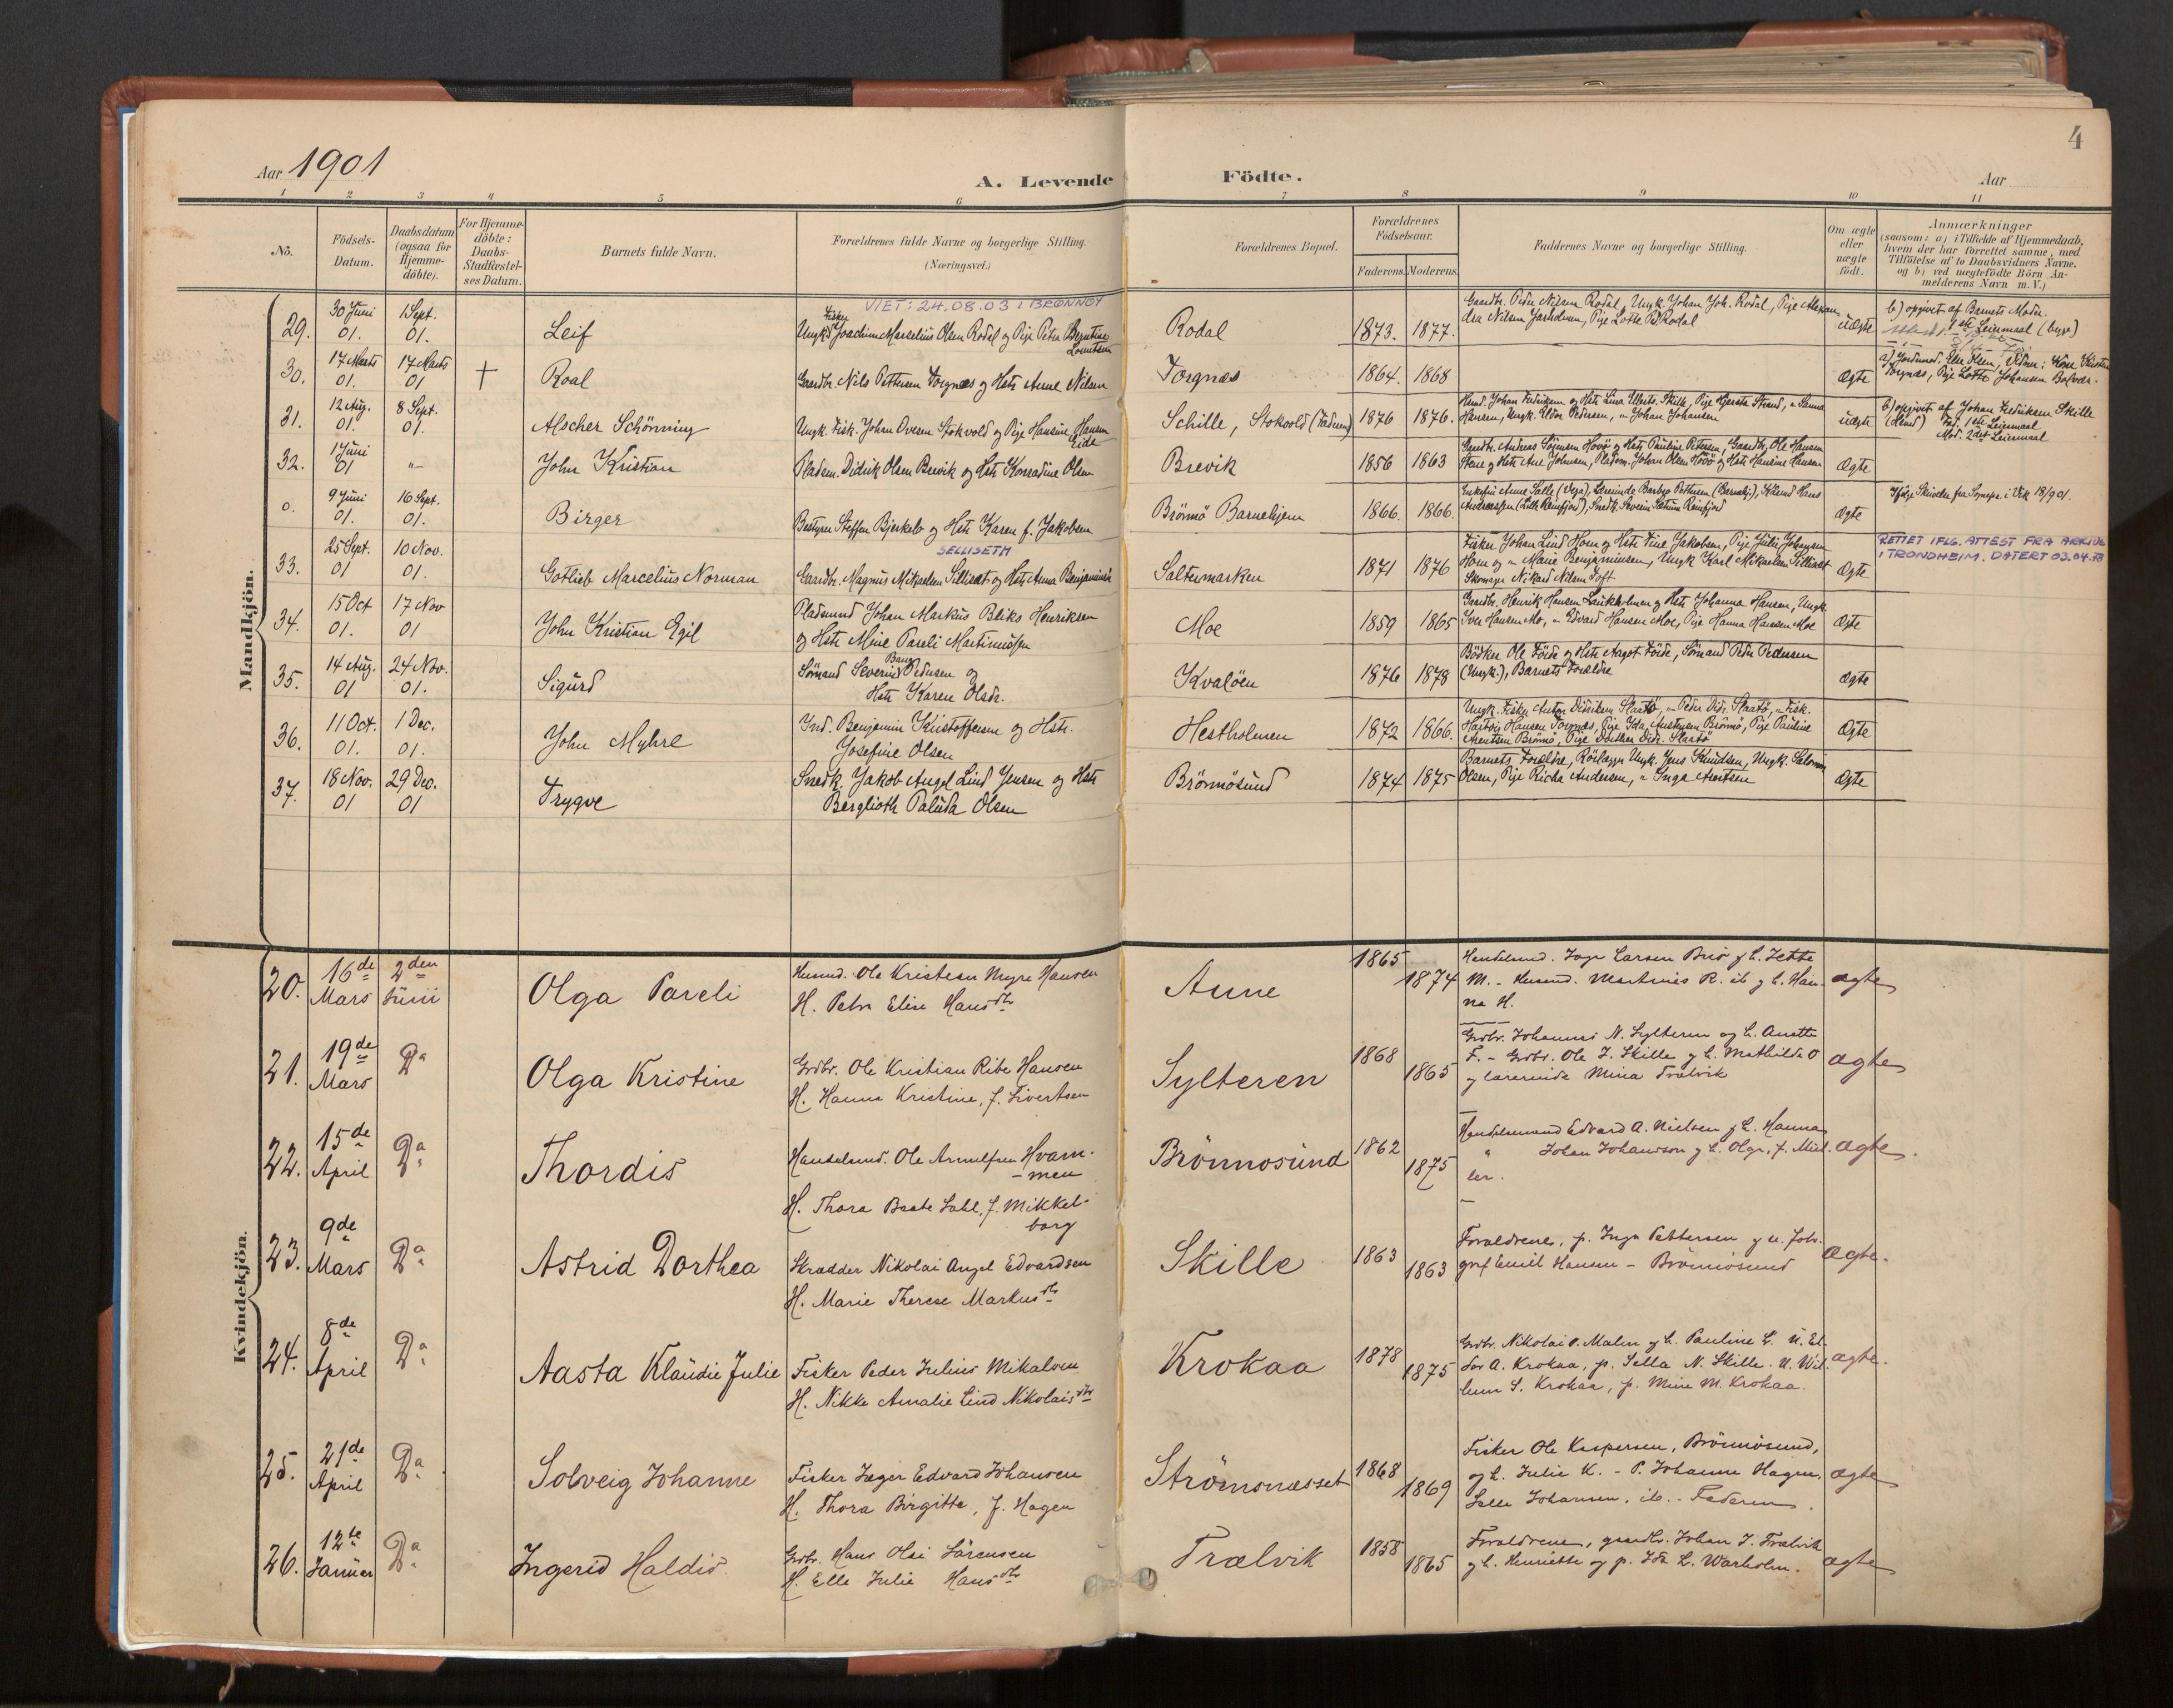 4
Aar 1901
A. Levende Födte.
Aar
1 2 3 4 5 6 7 8 9 10 11
No.
Födsels-
Datum.
Daabsdatum
(ogsaa for
Hjemme-
döbte).
For Hjemme-
döbte:
Daabs-
Stadfæstel-
ses Datum.
Barnets fulde Navn.
Forældrenes fulde Navne og borgerlige Stilling.
(Næringsvei.)
Forældrenes Bopæl.
Forældrenes
Födselsaar.
Faderens. Moderens.
Faddernes Navne og borgerlige Stilling.
Om ægte
eller
uægte
födt.
Anmærkninger
(saasom: a) i Tilfælde af Hjemmedaab,
hvem der har forrettet samme, med
Tilföielse af to Daabsvidners Navne.
og b) ved uægtefödte Börn An-
melderens Navn m. V.)
Mandkjön.
29.
30 Juni
01.
1 Sept.
01.
Leif
VIET: 24.08.03 I BRØNNØY
Fisker
Ungk. Joachim Marselius Olsen Rodal og Pige Petra Berntine
Lorentsen
Rodal
1873. 1877.
Gaardbr. Peder Nilsen Rodal, Ungk. Johan Joh. Rodal, Pige
uægte
b) opgivet af Barnets Moder.
1ste Leiermaal
30.
17 Marts
01.
17 Marts
01
+
Roal
Gaardbr. Nils Pettersen Torgnæs og Hstr Anne Nilsen
Torgnæs
1864. 1868
Ægte
a) Jordemod. Elen Olsen, Vidne: Kone
Torgnæs, Pige Lotte Johansen
31.
12 Aug.
01
8 Sept.
01.
Alscher Schönning
Ungk. Fisk. Johan Ovesen Stokvold og Pige Hansine Hansen
Eide
Schille, Stokvold (Faderen)
1876 1876.
Hansen, Ungk. Eldor Pedersen, " Johan Johansen
uægte
b) opgivet af Johan Fredriksen Skille
Fad. 1ste Leiermaal
Mod. 2det Leiermaal
32.
1 Juni
01
"
John Kristian
Pladsm. Didrik Olsen Brevik og Hstr Konradine Olsen
Brevik
1856 1863
Gaardbr. Andreas Sörensen Hovö og Hstr Pauline Petersen, Gaardbr. Ole Hansen
Stene og Hstr Ane Johnsen, Pladsm. Johan Olsen Hövö og Hstr Hansine Hansen
Ægte
0.
9 Juni
01.
16 Sept.
01.
Birger
Bestyrer Steffen Bjerkelo og Hstr Karen f. Jakobsen
Brönnö Barnehjem
1866. 1866.
Ægte
Ifölge Skrivelse fra Sognepr. i Vik 18/9 01.
33.
25 Sept.
01
10 Nov.
01.
Gotlieb Marcelius Norman
SELLISETH
Gaardbr. Magnus Mikaelsen Sillisæt og Hstr Anna Benjaminsen
Saltermarken
1871 1876
Fisker Johan Lind Horn og Hstr Tine Jakobsen, Pige Julie Johansen
Horn og " Marie Benjaminsen, Ungk Karl Mikaelsen Sillisæt
Skomager Nikard Nilsen Toft
Ægte
RETTET IFLG. ATTEST FRA ARKIVET
I TRONDHEIM. DATERT 03.04.
34.
15 Oct
01.
17 Nov
01
John Kristian Egil
Pladsmand Johan Markus Bliks Henriksen
og Hstr Mine Pareli Martinusen
Moe
1859 1865
Gaardbr. Henrik Hansen Laukholmen og Hstr Johanna Hansen, Ungk.
Iver Hansen Mo, " Edvard Hansen Moe, Pige Hanna Hansen Moe
Ægte
35.
14 Aug.
01
24 Nov.
01.
Sigurd
Bang
Sömand Severin Pedersen og
Hstr Karen Olsdr.
Kvalöen
1876 1878
Bödker Ole Föide og Hstr Aagot Föide, Sömand Peder Pedersen
(Ungk.), Barnets Forældre
Ægte
36.
11 Oct.
01.
1 Dec.
01.
John Myhre
Ind. Benjamin Kristoffersen og Hstr.
Josefine Olsen
Hestholmen
1872 1866.
Ungk. Fisker Anton Didriksen Slaatö, " Peder Didr. Slaatö, " Fisk.
Hartvig Hansen Torgnæs, Pige Ida Arntsen Brönnö, Pige Pauline
Arentsen Brönnö, Pige Dorthea Didr. Slaatö
Ægte
37.
18 Nov.
01
29 Dec.
01
Trygve
Snedk. Jakob Angel Lind Jensen og Hstr
Berglioth Paluda Olsen
Brönnösund
1874 1875
Barnets Forældre, Rörlægger Ungk. Jens Knudsen, Ungk. Salomon
Olsen, Pige Rikke Andersen, " Inga Arntsen
Ægte
Kvindekjön.
20.
16de
Mars
2den
Juni
Olga Pareli
Husmd. Ole Kristian Myre Hansen
H. Petra Elise Hansdtr
Aune
1865
1874
Handelsmd. Inge Larsen Brö og h. Jette
M. - Husmd. Martinus R. ib og h. Han-
na H.
ægte
21.
19de
Mars
Do
Olga Kristine
Grdbr. Ole Kristian Ribe Hansen
H. Hanna Kristine, f. Sivertsen
Sylteren
1868
1865
Grdbr. Johannes N. Sylteren og h. Anette
F. - Grdbr. Ole J. Skille og h. Mathilde O
og lærerinde Mina Trælvik
ægte
22.
15de
April
Do
Thordis
Handelsmd. Ole Arnulfsen Hvam-
- men
H. Thora Beate Dahl, f. Mikkel-
borg
Brönnosund
1862
1875
Handelsmand Edvard A. Nielsen og h. Hanna
" Johan Johansson og h. Olga, f. Mül-
ler.
ægte.
23.
9de
Mars
Do
Astrid Dorthea
Skrædder Nikolai Angel Edvardsen
H. Marie Therese Markusdtr
Skille
1863
1863
Forældrene, p. Inga Pettersen og u. foto-
graf Emil Hansen - Brönnösund
Ægte.
24.
8de
April
Do
Aasta Klaudie Julie
Fisker Peder Julius Mikalsen
H. Nikke Amalie Lind Nikolaisdtr
Krokaa
1878
1875
Grdbr. Nikolai P. Malen og h. Pauline L. U. El-
dor A. Krokaa, p. Sella N. Skille. U. Wil-
helm S. Krokaa, p. Mine M. Krokaa.
ægte.
25.
21de
April
Do
Solveig Johanne
Fisker Jæger Edvard Johansen
H. Thora Birgitte, f. Hagen
Strömsnæsset
1868
1869
Fisker Ole Kaspersen, Brönnösund,
og h. Julie K. - P. Johanne Hagen,
Salle Johansen, ib. - Faderen.
ægte
26.
12te
Januar
Do
Ingerid Haldis
Grdbr. Hans Olai Sörensen
H. Elle Julie Hansdtr
Trælvik
1858
1865
Forældrene, gaardbr. Johan J. Trælvik
og h. Henriette og p. Ida L. Warholm.
ægte